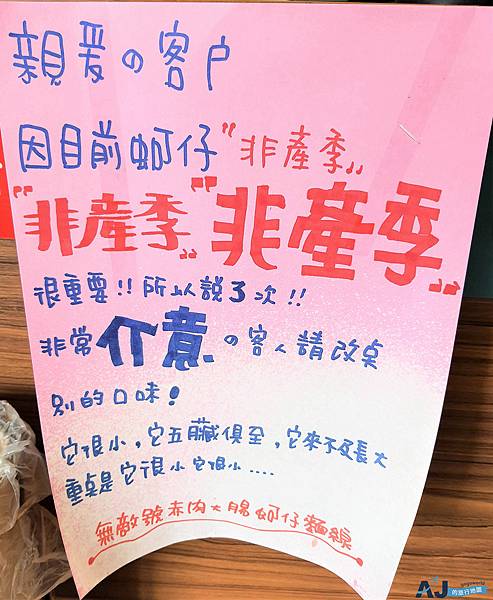 親爱の客户
因目前蚵仔"非產季"
"非產季""非產季"
很重要!!所以說3次!!
非常介意の客人請改桌
別的口味!
它很小,它五臟俱全,它來不及長大
重點是它很小它很小....
無敵號赤肉大腸蚵仔麵線
AJ的旅行地圖